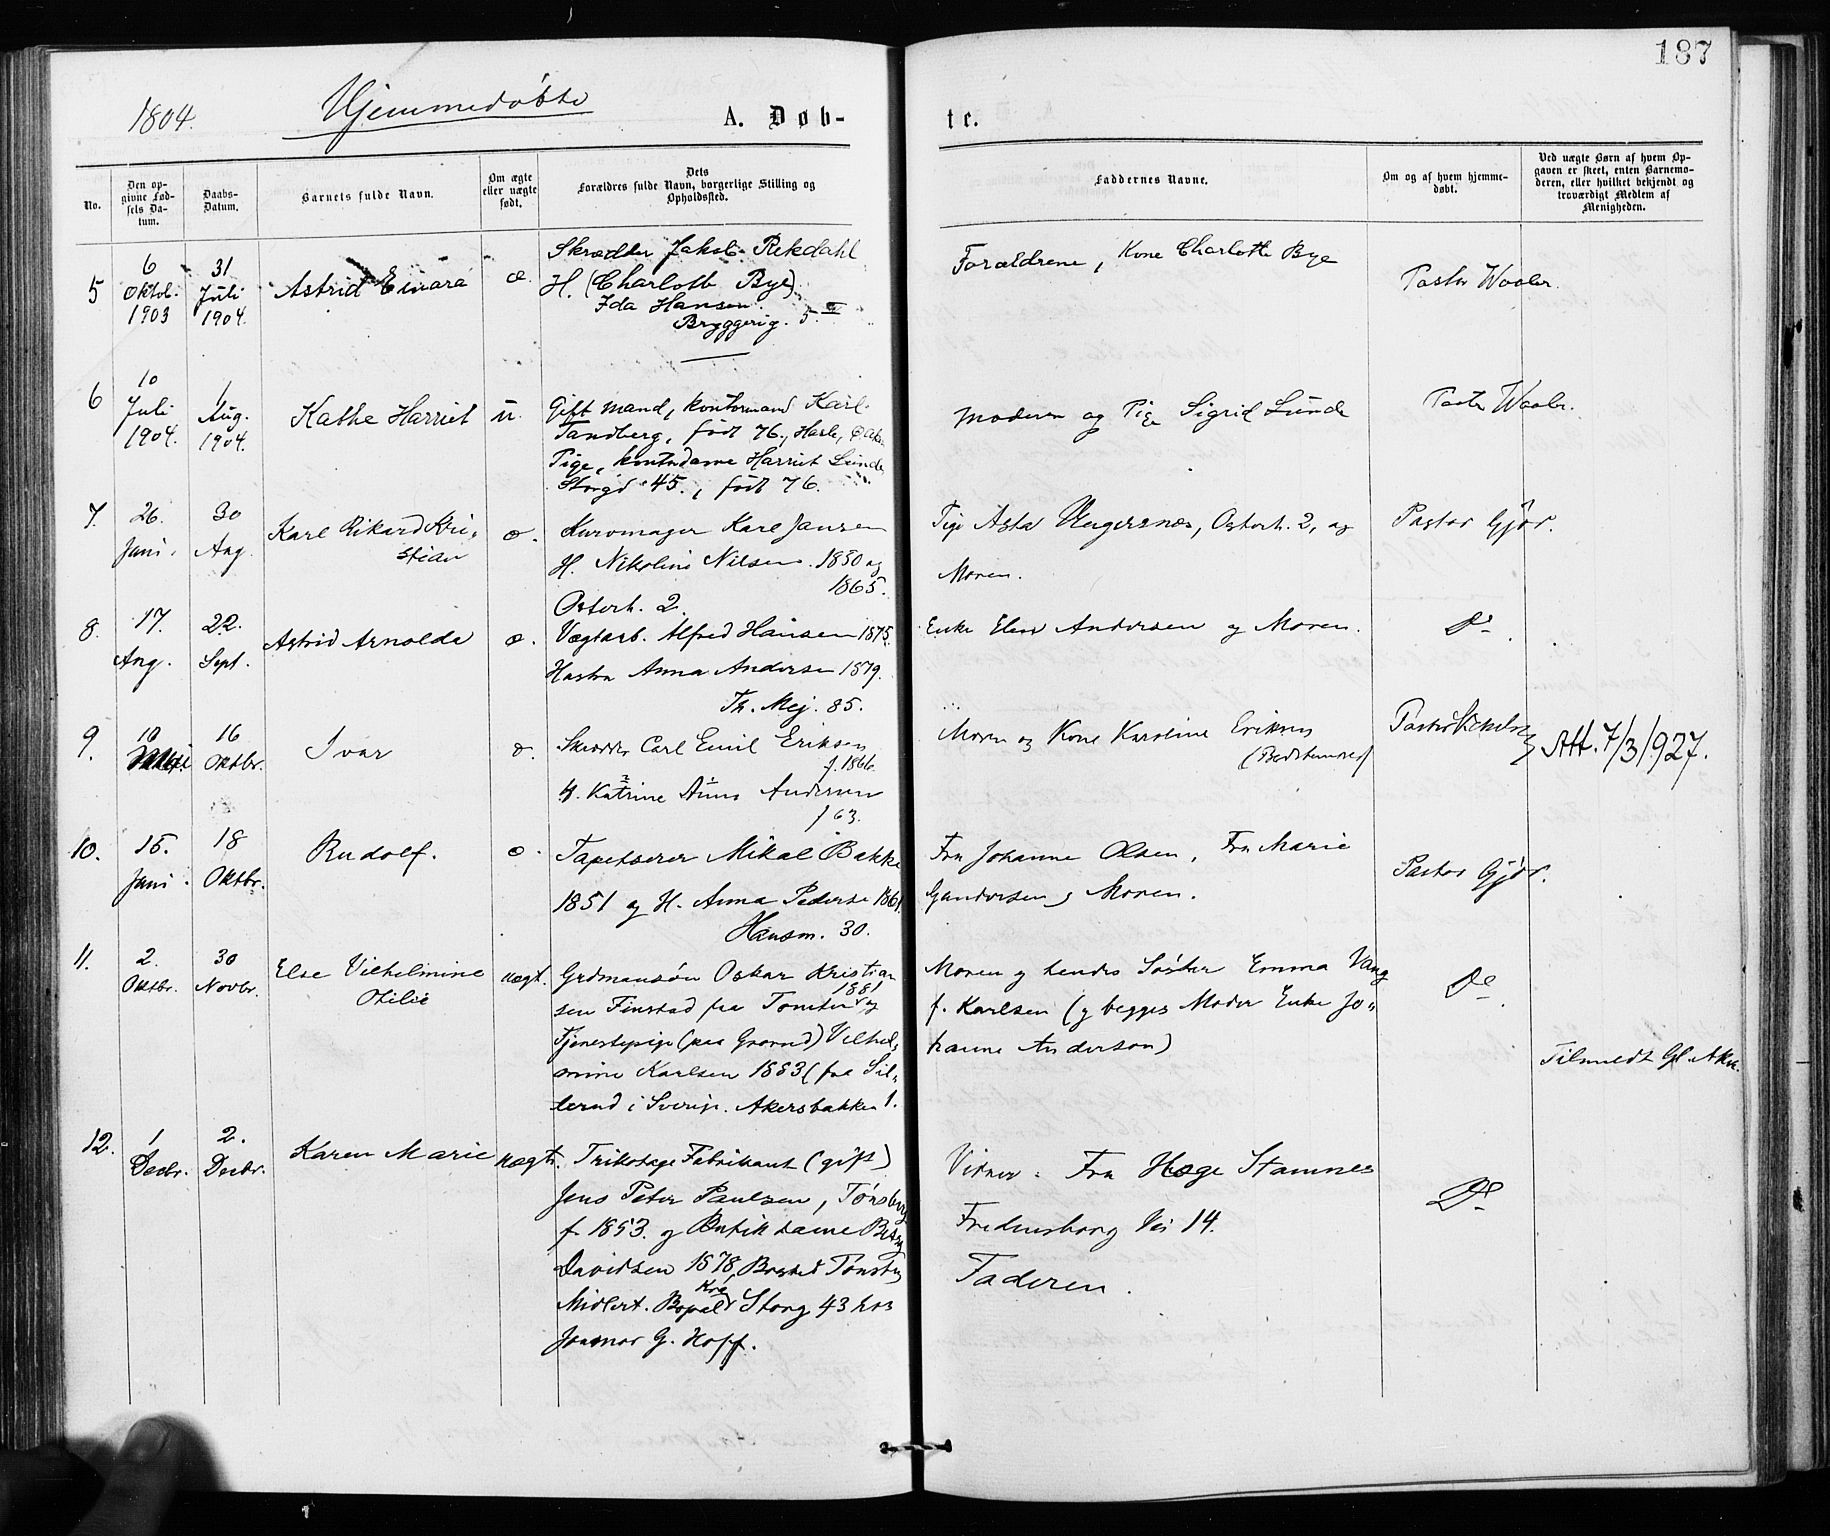 187
1804.
Hjemmedøbte
A. Døb-
te.
No.
Den op-
givne Fød-
sels Da-
tum.
Daabs-
Datum.
Barnets fulde Navn.
Om ægte
eller uægte
født.
Dets
Forældres fulde Navn, borgerlige Stilling og
Opholdssted.
Faddernes Navne.
Om og af hvem hjemme-
døbt.
Ved uægte Børn af hvem Op-
gaven er skeet, enten Barnemo-
deren, eller hvilket bekjendt og
troværdigt Medlem af
Menigheden.
5
6
Oktob.
1903
31
Juli
1904.
Astrid Einara
æ
Skrædder Jakob Rekdahl
H. (Charlotte Bye)
Ida Hansen.
Bryggerig. 5.
Forældrene, Kone Charlotte Bye
Pastor Waaler.
6
10
Juli
1904.
1
Aug.
1904.
Kathe Harriet
u.
Gift mand, kontormand Karl
Tandberg, født 76., Hasle,
Pige, kontordame Harriet Lunde
Storgd 45., født 76.
Moderen og Pige Sigrid Lunde
Pastor Waaler.
7.
26.
Juni.
30
Aug.
Karl Rikard Kri-
stian
æ.
Kurvmager Karl Jansen
H. Nikoline Nilsen. 1850 og
1865.
Osterh. 2.
Pige Asta Ungersnæs, Osterh. 2, og
Moren.
Pastor Gjør.
8.
17.
Aug.
22.
Sept.
Astrid Arnolda
æ.
Vægtarb. Alfred Hansen 1875.
Hustru Anna Andersen 1879.
Th. Mej. 85.
Enke Elen Andersen og Moren.
Do
9.
10
Mai
16
Oktbr.
Ivar
æ
Skrædder Carl Emil Eriksen
f. 1866.
H. Katrine Anna Andersen
f 63.
Moren og Kone Karoline Eriksen
(Bedstemoder)
Pastor
Att. 7/3/927.
10.
15.
Juni.
18
Oktbr.
Rudolf.
æ.
Tapetserer Mikal Bakke
1851 og H. Anna Pederse 1861.
Hausm. 30.
Fru Johanne Olsen, Fru Marie
Gundersen, Moren.
Pastor Gjør.
11.
2.
Oktbr.
30
Novbr.
Else Vilhelmine
Otilie
uægt.
Grdmansøn Oskar Kristian
1881
sen Finstad fra Tomter og
Tjenestepige (paa Grorud) Vilhel-
mine Karlsen 1883 (fra Sil-
lerud i Sverige. Akersbakken 1.
Moren og hendes Søster Emma Vang
f. Karlsen (og begges Moder Enke Jo-
hanne Anderson)
Do
Tilmeldt Gl. Aker.
12.
1
Decbr.
2.
Decbr.
Karen Marie
uægt.
Trikotage Fabrikant (gift)
Jens Peter Paulsen, Tønsberg
f. 1853. og Butikdame Betsy
Davidsen 1878, Bosted Tønsberg
Midlert. Bopæl Kra Storg 43 hos
Jonmor G. Hoff.
Vidner. Fru Hæge Stamnes
Fredensborg Vei 14.
Faderen.
Do